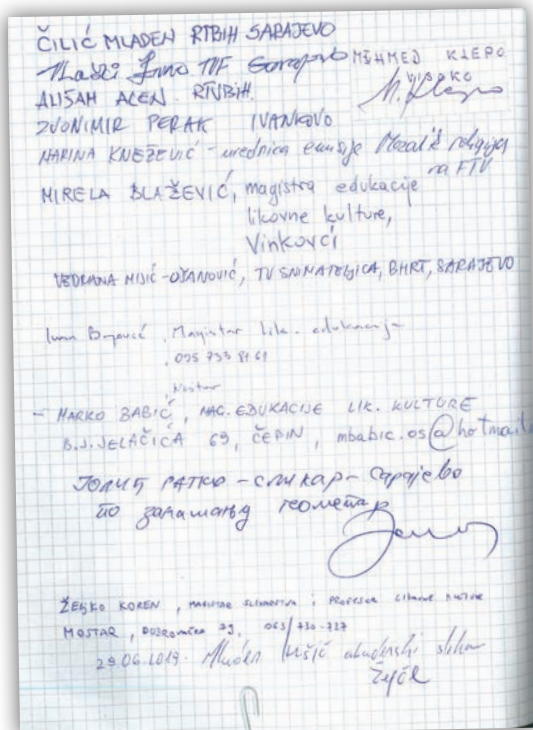 ČILIĆ MLADEN RTBIH SARAJEVO
MEHMED KLEPO
VISOKO
ALIŠAH ACEN RTVBIH.
ZVONIMIR PERAK IVANKOVO
MARINA KNEŽEVIĆ - urednica emisije Mozaik religija
na FTV
MIRELA BLAŽEVIĆ, magistra edukacije
likovne kulture,
Vinkovci
VEDRANA MIJIĆ-DŽANOVIĆ, TV SNIMATELJICA, BHRT, SARAJEVO
Magistar lik. edukacije
Mostar
- MARKO BABIĆ, MAG. EDUKACIJE LIK. KULTURE
B.J. JELAČIĆA 69, ČEPIN, mbabic.os@hotmail
РАТКО - сликар - Сарајево
по занимању геометар
ŽELJKO KOREN, MAGISTAR SLIKARSTVA i PROFESOR LIKOVNE KULTURE
MOSTAR, DUBROVAČKA 29, 063/730-727
29.06.2019. Mladen akademski slikar